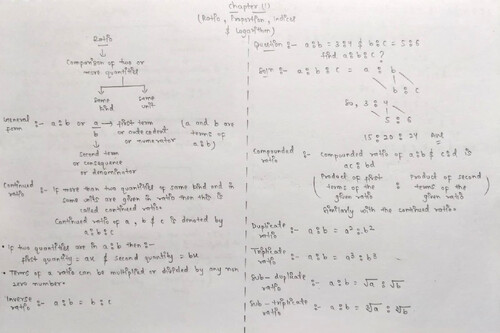 Chapter (1)
(Ratio, Proportion, Indices
& Logarithm)
Ratio
Comparison of two or
more quantities
Same
kind
Same
unit
General
form :- a:b or a/b → first term
or antecedent
or numerator
(a and b are
terms of
a:b)
Second term
or consequence
or denominator
Continued
ratio :- If more than two quantities of same kind and in
same units are given in ratio then this is
called continued ratio.
Continued ratio of a, b & c is denoted by
a:b:c
• If two quantities are in a:b then :-
first quantity = ax & second quantity = bx
• Terms of a ratio can be multiplied or divided by any non
zero number.
Inverse
ratio :- a:b = b:c
Question :- a:b = 3:4 & b:c = 5:6
find a:b:c?
Solⁿ :- a:b:c = a : b
b : c
So, 3 : 4
5 : 6
15:20:24 Ans
Compounded
ratio :- compounded ratio of a:b & c:d is
ac:bd
(Product of first : Product of second
terms of the : terms of the
given ratio given ratio)
Similarly with the continued ratio.
Duplicate
ratio :- a:b = a²:b²
Triplicate
ratio :- a:b = a³:b³
Sub-duplicate
ratio :- a:b = √a:√b
Sub-triplicate
ratio :- a:b = ∛a:∛b